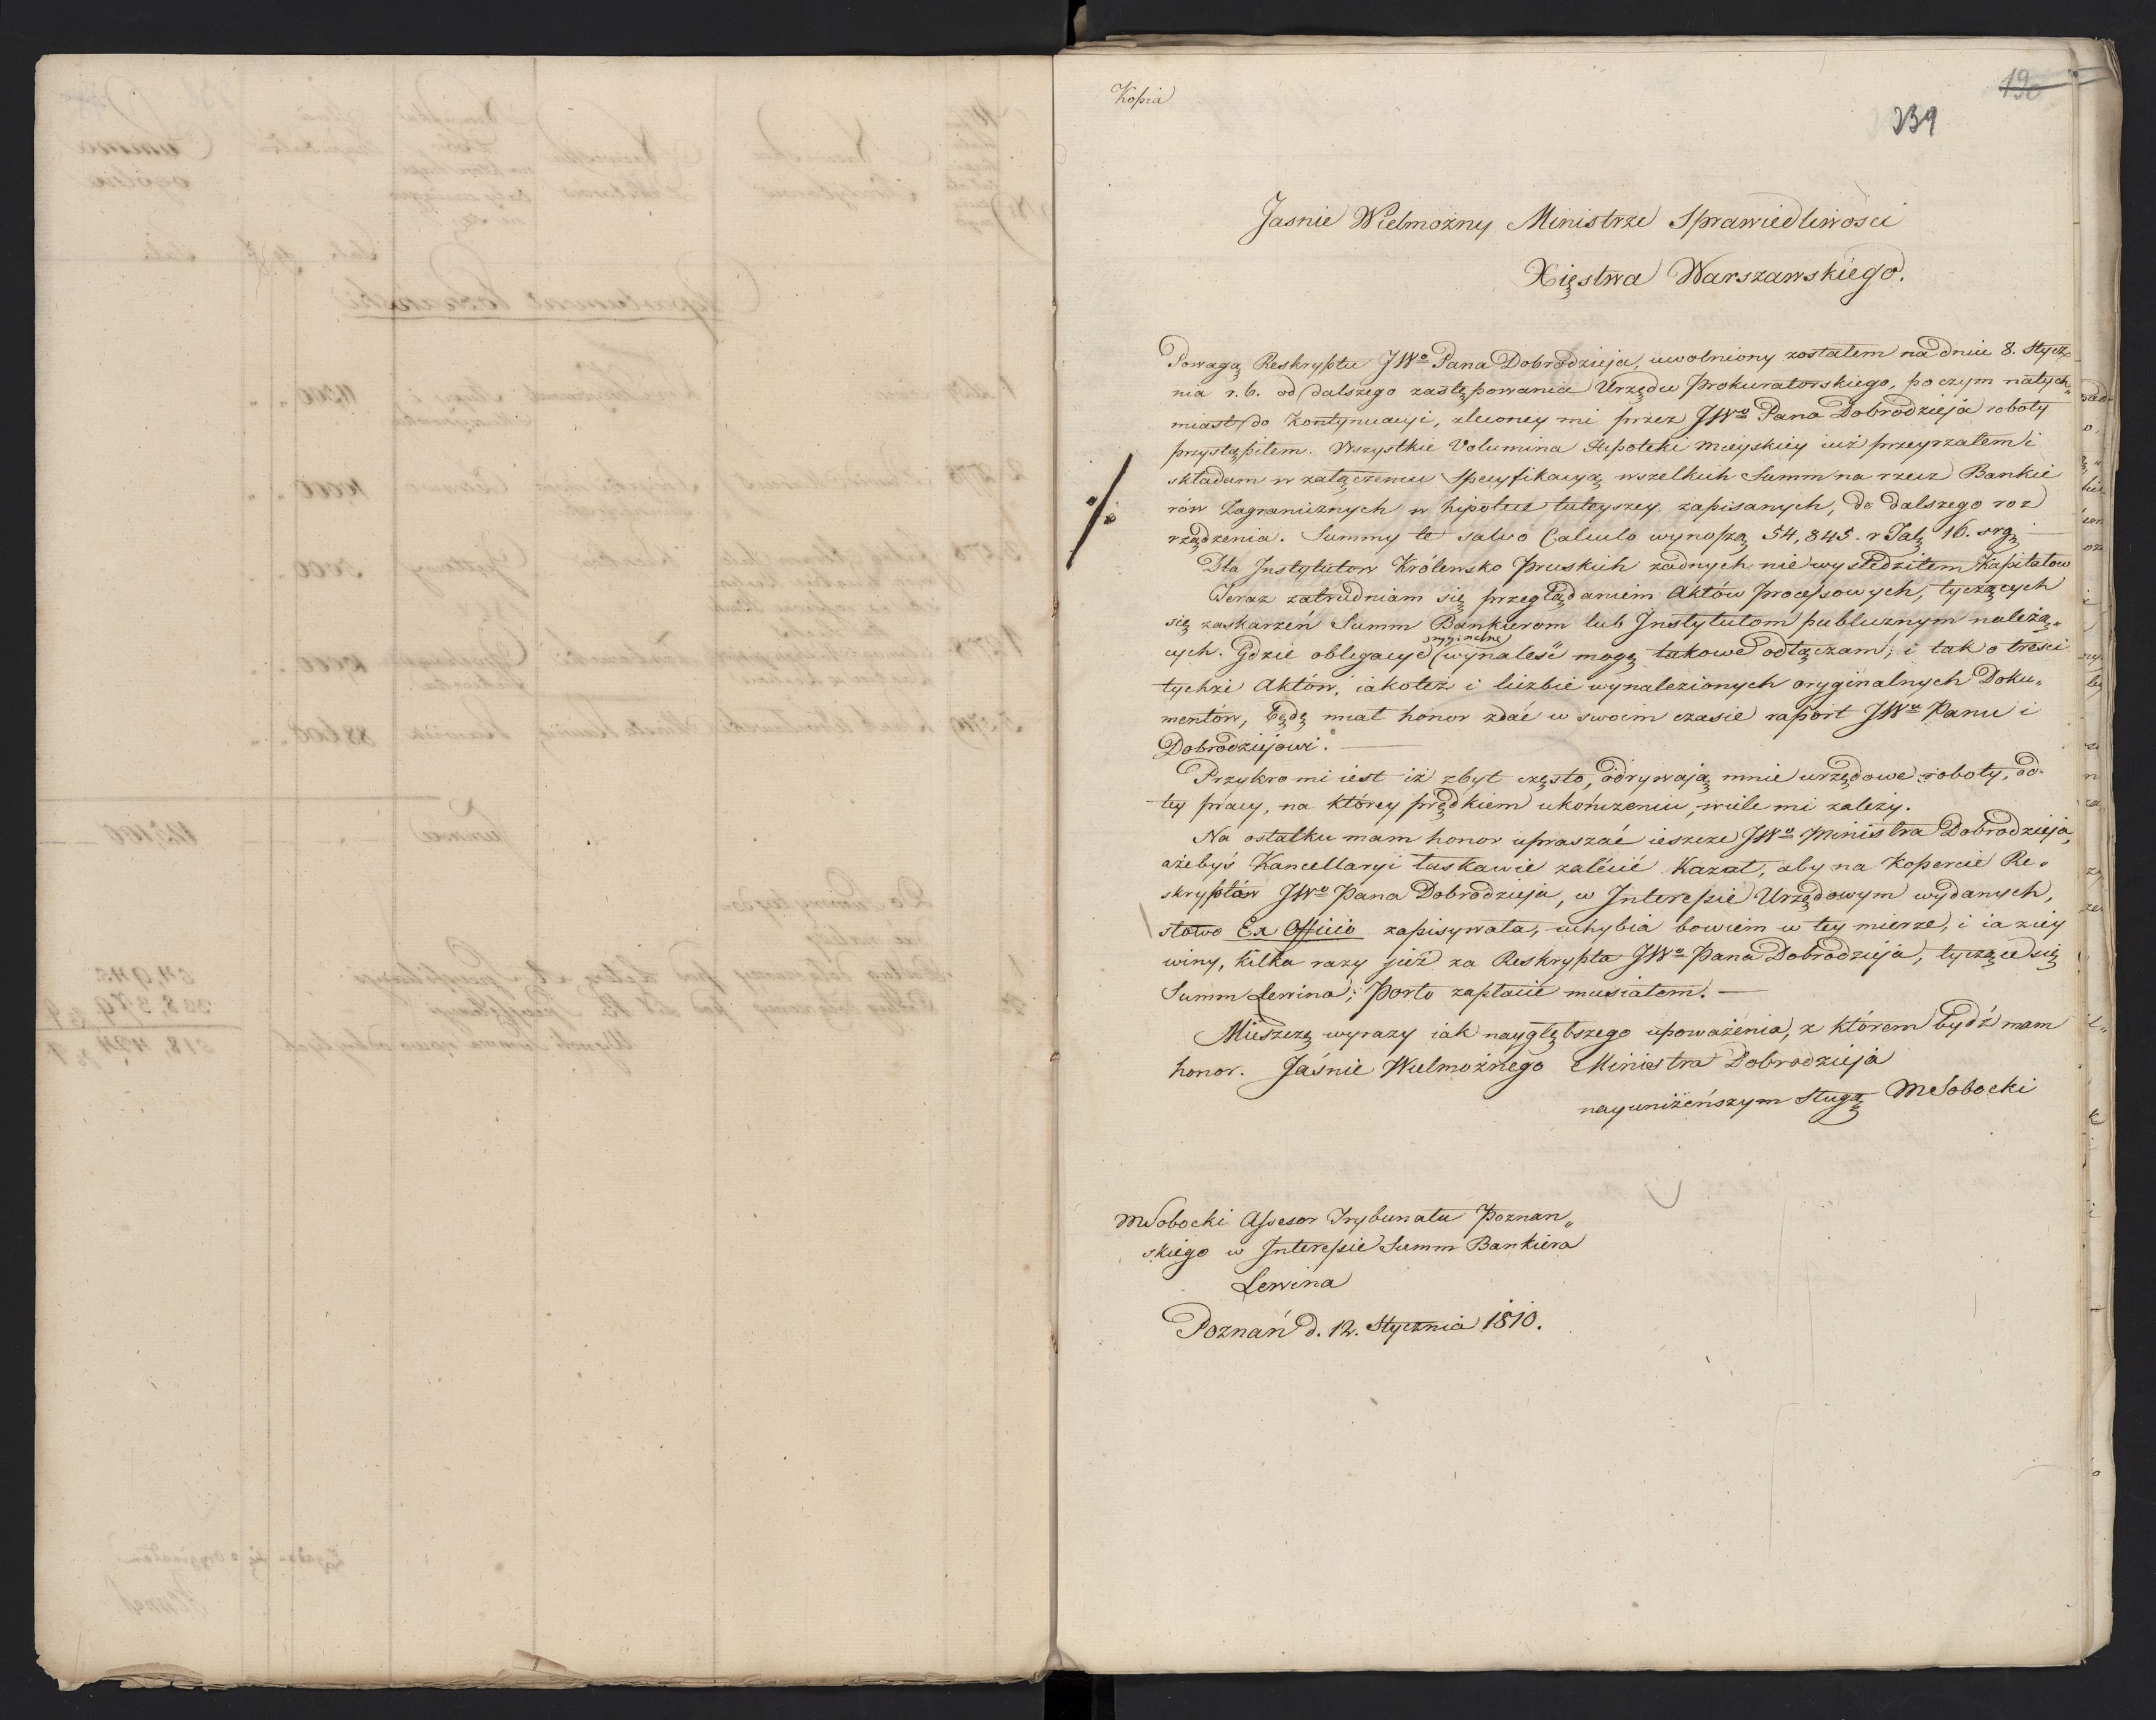 Kopia
130
239
Jasnie Wielmożny Ministrze Sprawiedliwości
Xięstwa Warszawskiego.
Powagą Reskryptu JWo Pana Dobrodzieja, uwolniony zostałem na dniu 8. Stycz„
nia r. b. od dalszego zastępowania Urzędu Prokuratorskiego, po czym natych„
miast do kontynuacyi, zleconey mi przez JWo Pana Dobrodzieja roboty
przystąpiłem. Wszystkie Volumina Hipoteki mieyskiey iuż przeyrzałem i
składam w załączeniu Specyfikacyą wszelkich Summ na rzecz Bankie
rów Zagranicznych w hipotece tuteyszey zapisanych, do dalszego roz
rządzenia. Summy te salvo Calculo wynoszą 54,845. r Tal. 16. srg. —
Dla Instytutow Królewsko Pruskich żadnych nie wyśledziłem Kapitałow
Teraz zatrudniam się przeglądaniem Aktów processowych, tyczących
się zaskarżeń Summ Bankierom lub Instytutom publicznym należą„
cych. Gdzie obligacye oryginalne wynaleść mogę takowe odłączam, i tak o treści
tychże Aktów, iakoteż i liczbie wynalezionych oryginalnych Doku„
mentów, będę miał honor zdać w swoim czasie raport JWu Panu i
Dobrodziejowi. —
Przykro mi iest iż zbyt często, odrywaią mnie urzędowe roboty, od
tey pracy, na którey prędkiem ukończeniu, wiele mi zależy.
Na ostatku mam honor upraszać ieszcze JWo Ministra Dobrodzieja,
ażebyś Kancellaryi łaskawie zalécić kazał, aby na kopercie Re„
skryptów JWo Pana Dobrodzieja, w Interessie Urzędowym wydanych,
słowo Ex Officio zapisywała, uchybia bowiem w tey mierze, i ia z iey
winy, kilka razy już za Reskrypta JWo Pana Dobrodzieja, tyczące się
Summ Lewina, Porto zapłacić musiałem. —
Mieszczę wyrazy iak naygłębszego upoważenia, z którem bydź mam
honor. Jaśnie Wielmożnego Ministra Dobrodzieja
nayuniżeńszym Sługą MSobocki
MSobocki Assesor Trybunału Poznan„
skiego w Interessie Summ Bankiera
Lewina
Poznań d. 12. Stycznia 1810.